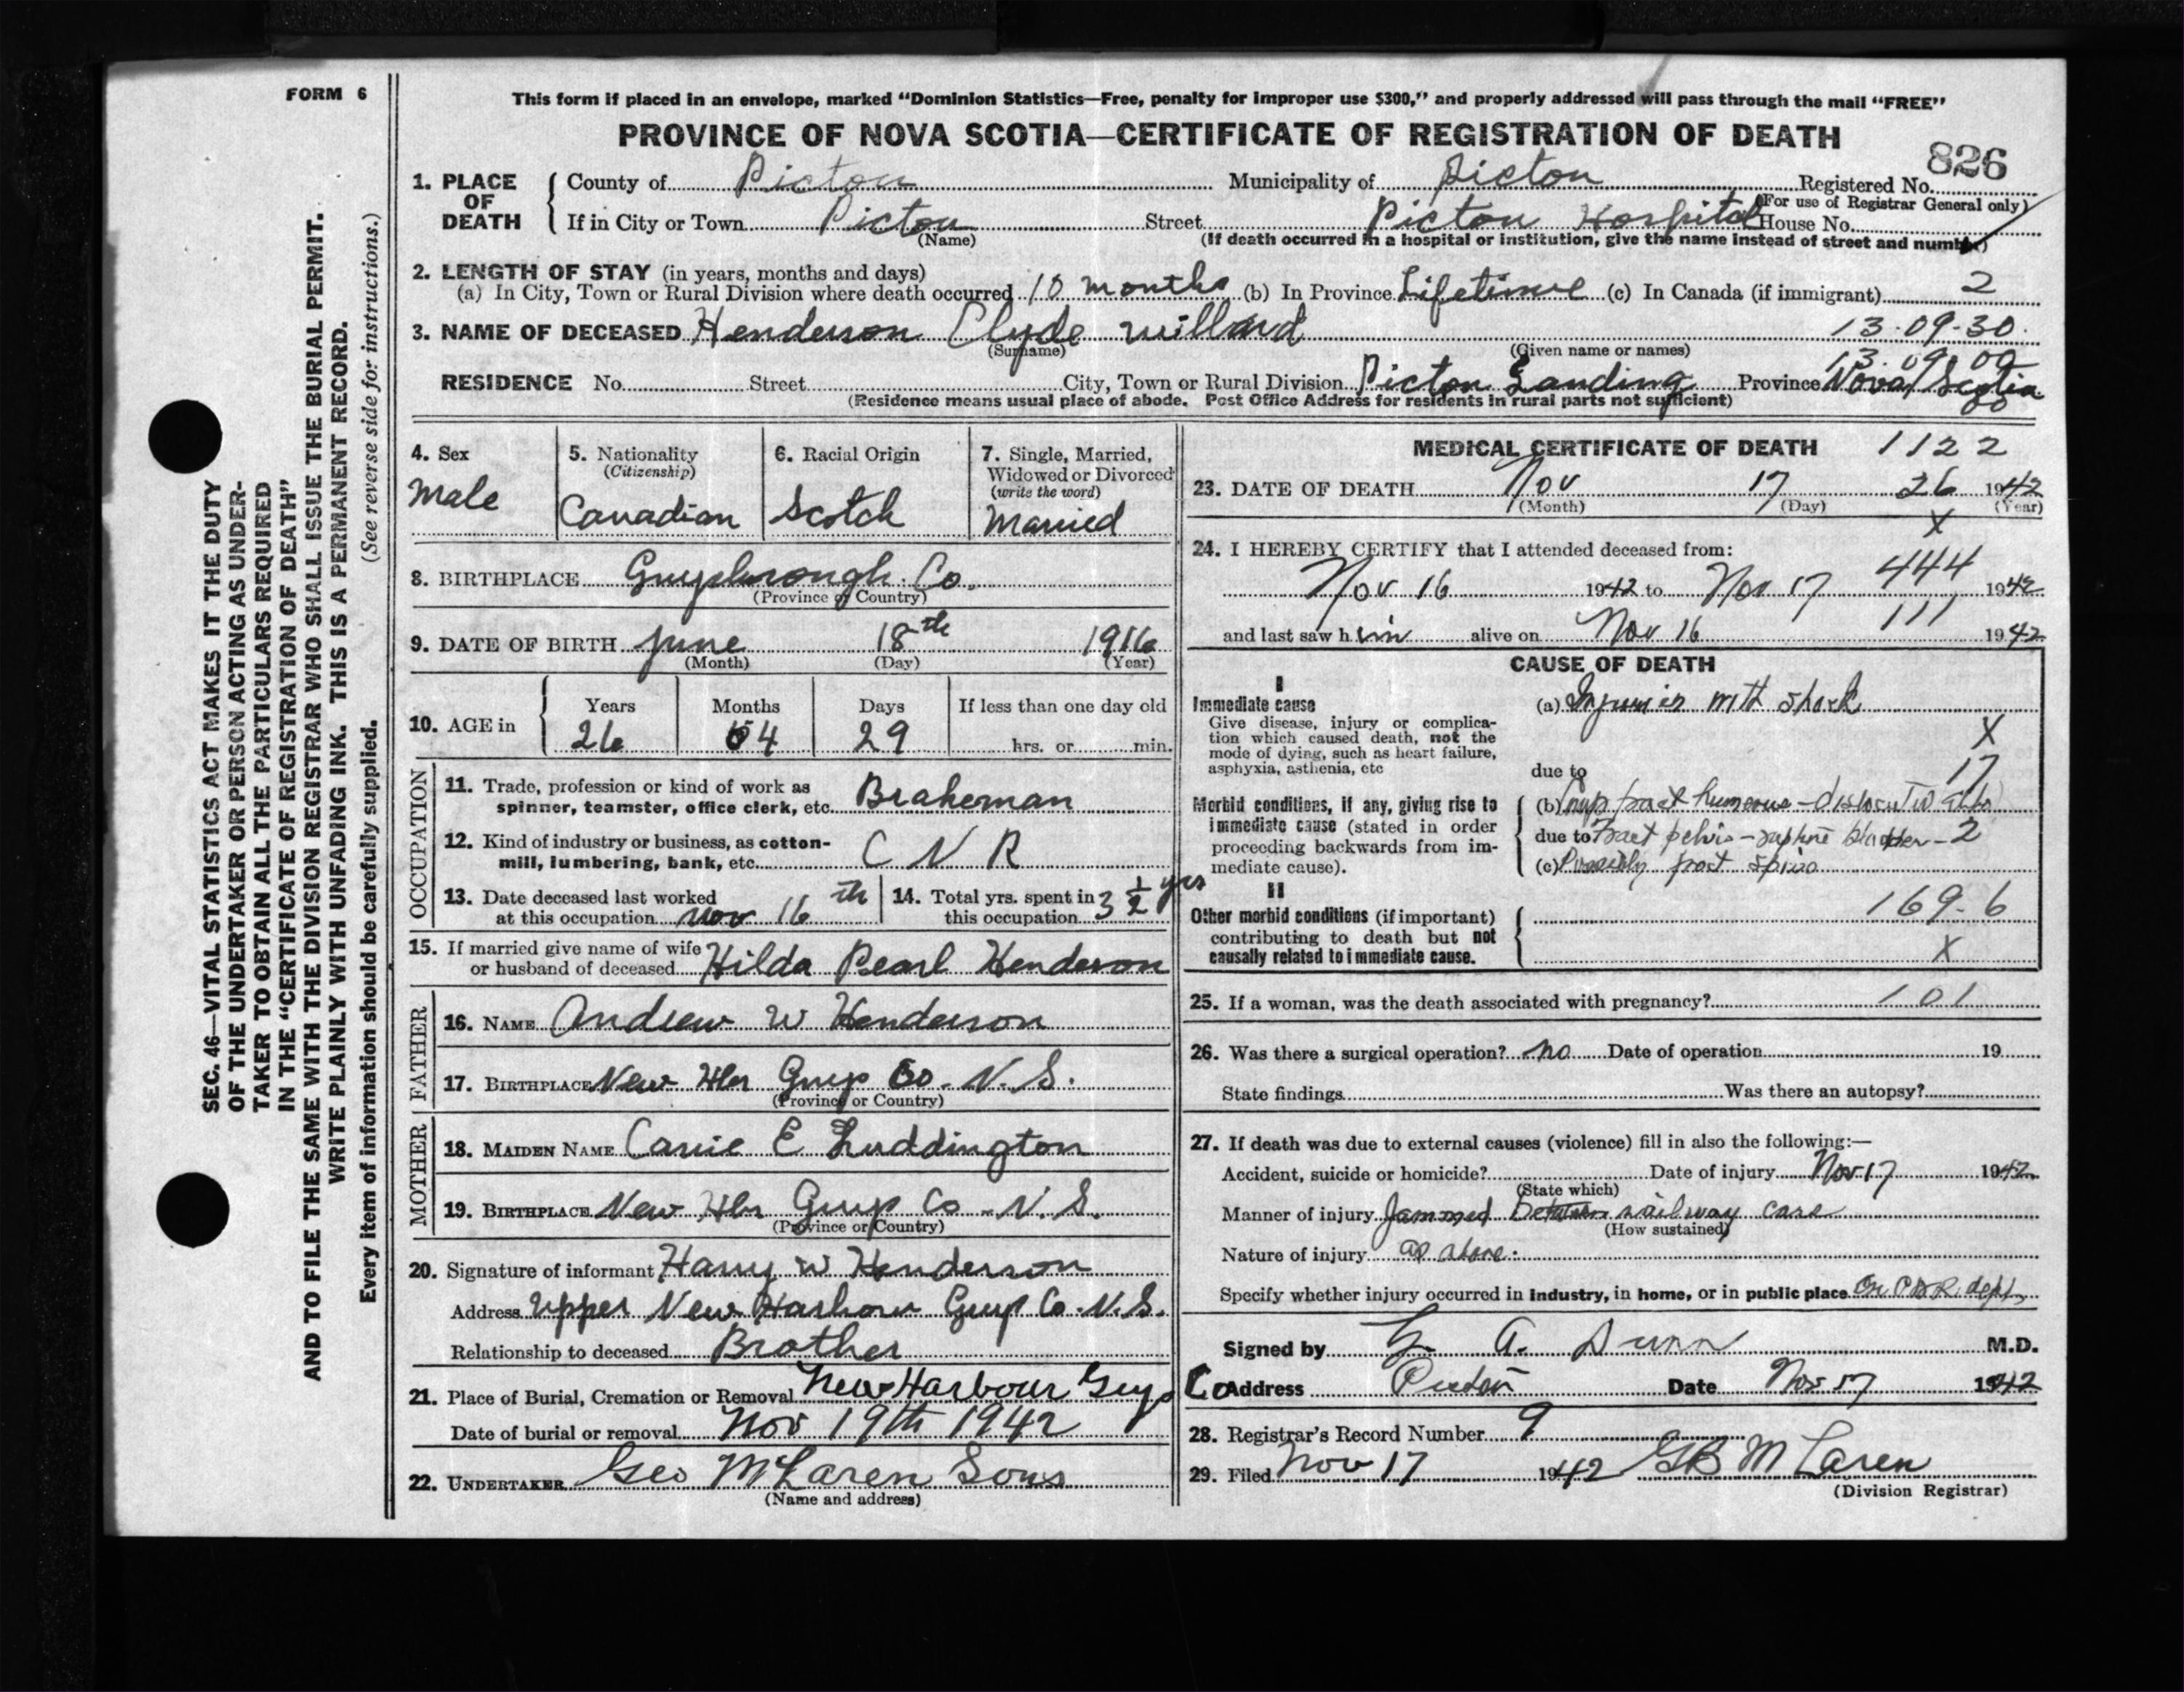 FORM 6
This form if placed in an envelope, marked "Dominion Statistics—Free, penalty for improper use $300," and properly addressed will pass through the mail "FREE"
PROVINCE OF NOVA SCOTIA—CERTIFICATE OF REGISTRATION OF DEATH
826
1. PLACE OF DEATH County of Pictou Municipality of Pictou Registered No.
(For use of Registrar General only)
If in City or Town Pictou Street Pictou Hospital House No.
(Name) (If death occurred in a hospital or institution, give the name instead of street and number)
2. LENGTH OF STAY (in years, months and days)
(a) In City, Town or Rural Division where death occurred 10 months (b) In Province Lifetime (c) In Canada (if immigrant) 2
3. NAME OF DECEASED Henderson Clyde Willard 13.09-30.
(Surname) (Given name or names)
13.09 00
RESIDENCE No. Street City, Town or Rural Division Pictou Landing Province Nova Scotia
(Residence means usual place of abode. Post Office Address for residents in rural parts not sufficient)
4. Sex
Male
5. Nationality
(Citizenship)
Canadian
6. Racial Origin
Scotch
7. Single, Married,
Widowed or Divorced
(write the word)
Married
8. BIRTHPLACE Guysborough Co.
(Province or Country)
9. DATE OF BIRTH June 18th 1916
(Month) (Day) (Year)
10. AGE in Years Months Days If less than one day old
26 4 29 hrs. or min.
OCCUPATION
11. Trade, profession or kind of work as
spinner, teamster, office clerk, etc. Brakeman
12. Kind of industry or business, as cotton-
mill, lumbering, bank, etc. C N R
13. Date deceased last worked
at this occupation Nov 16th
14. Total yrs. spent in
this occupation 3 1/2 yrs
15. If married give name of wife
or husband of deceased Hilda Pearl Henderson
FATHER
16. NAME Andrew W Henderson
17. BIRTHPLACE New Hbr Guys Co. N.S.
(Province or Country)
MOTHER
18. MAIDEN NAME Carrie E Luddington
19. BIRTHPLACE New Hbr Guys Co. N.S.
(Province or Country)
20. Signature of informant Harry W Henderson
Address Upper New Harbour Guys Co. N.S.
Relationship to deceased Brother
21. Place of Burial, Cremation or Removal New Harbour Guys Co
Date of burial or removal Nov 19th 1942
22. UNDERTAKER Geo McLaren Sons
(Name and address)
MEDICAL CERTIFICATE OF DEATH 1122
23. DATE OF DEATH Nov 17 26 1942
(Month) (Day) (Year)
X
24. I HEREBY CERTIFY that I attended deceased from:
444
Nov 16 1942 to Nov 17 1942
111
and last saw him alive on Nov 16 1942
CAUSE OF DEATH
I
Immediate cause
Give disease, injury or complica-
tion which caused death, not the
mode of dying, such as heart failure,
asphyxia, asthenia, etc
(a) Injuries with shock
X
due to 17
Morbid conditions, if any, giving rise to
immediate cause (stated in order
proceeding backwards from im-
mediate cause).
(b) fract humerus - 
due to Fract pelvis - rupture bladder - 2
(c) Possibly fract spine
II
Other morbid conditions (if important)
contributing to death but not
causally related to immediate cause.
169-6
X
25. If a woman, was the death associated with pregnancy? 101
26. Was there a surgical operation? no Date of operation 19
State findings Was there an autopsy?
27. If death was due to external causes (violence) fill in also the following:—
Accident, suicide or homicide? Date of injury Nov 17 1942
(State which)
Manner of injury Jammed Between railway cars
(How sustained)
Nature of injury as above.
Specify whether injury occurred in industry, in home, or in public place On
Signed by A. Dunn M.D.
Address Pictou Date Nov 17 1942
28. Registrar's Record Number 9
29. Filed Nov 17 1942 GB McLaren
(Division Registrar)
SEC. 46—VITAL STATISTICS ACT MAKES IT THE DUTY
OF THE UNDERTAKER OR PERSON ACTING AS UNDER-
TAKER TO OBTAIN ALL THE PARTICULARS REQUIRED
IN THE "CERTIFICATE OF REGISTRATION OF DEATH"
AND TO FILE THE SAME WITH THE DIVISION REGISTRAR WHO SHALL ISSUE THE BURIAL PERMIT.
WRITE PLAINLY WITH UNFADING INK. THIS IS A PERMANENT RECORD.
Every item of information should be carefully supplied. (See reverse side for instructions.)